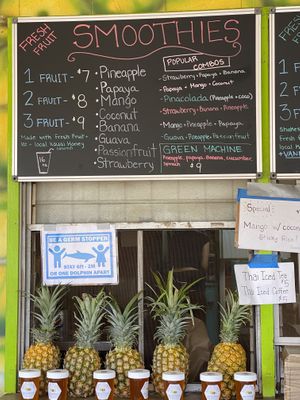 FRESH FRUIT
SMOOTHIES
1 FRUIT - $7
2 FRUIT - $8
3 FRUIT - $9
Made with Fresh Fruit,
Ice + local Kauai Honey
16
• Pineapple
• Papaya
• Mango
• Coconut
• Banana
• Guava
• Passionfruit
• Strawberry
POPULAR COMBOS
• Strawberry + Papaya + Banana
• Papaya + Mango + Coconut
• Pinacolada (Pineapple + coco)
• Strawberry + Banana + Pineapple
• Mango + Pineapple + Papaya
• Guava + Pineapple + Passionfruit
GREEN MACHINE
Pineapple, papaya, Banana, cucumber
Spinach $9
FRESH
FRUIT
BE A GERM STOPPER
STAY 6ft - 2M
OR ONE DOLPHIN APART
Special:
Mango w/ coconut
Sticky Rice
Thai Iced Tea
$5
Thai Iced Coffee
$5